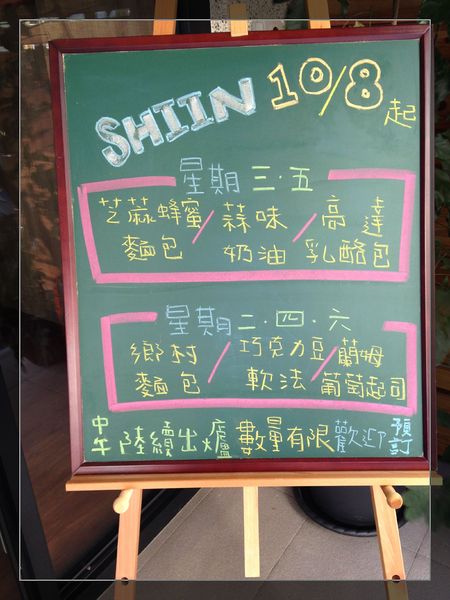 SHIIN 10/8起
星期三·五
芝蔴蜂蜜麵包/蒜味奶油/高達乳酪包
星期二·四·六
鄉村麵包/巧克力豆軟法/蘭姆葡萄起司
中午陸續出爐數量有限歡迎預訂